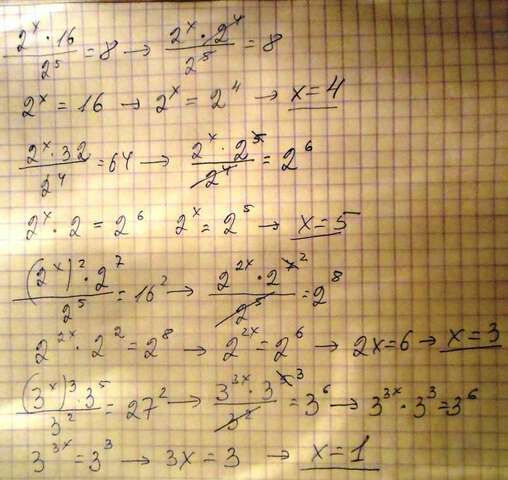 (2^x · 16)/2^5 = 8 → (2^x · 2^4)/2^5 = 8
2^x = 16 → 2^x = 2^4 → x = 4
(2^x · 32)/2^4 = 64 → (2^x · 2^5)/2^4 = 2^6
2^x · 2 = 2^6 2^x = 2^5 → x = 5
((2^x)^2 · 2^7)/2^5 = 16^2 → (2^2x · 2^7 2)/2^5 = 2^8
2^2x · 2^2 = 2^8 → 2^2x = 2^6 → 2x = 6 → x = 3
((3^x)^3 · 3^5)/3^2 = 27^2 → (3^3x · 3^5 3)/3^2 = 3^6 → 3^3x · 3^3 = 3^6
3^3x = 3^3 → 3x = 3 → x = 1